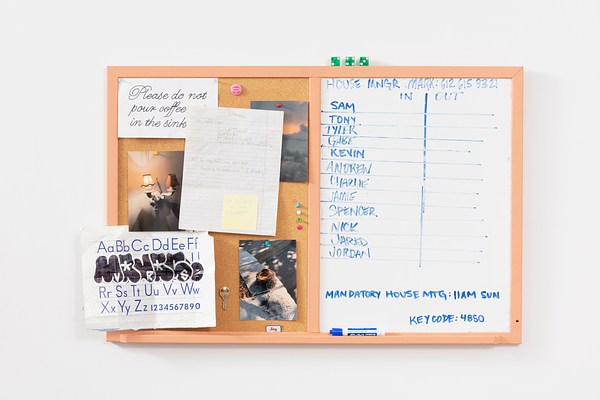 Please do not
pour coffee
in the sink
Aa Bb Cc Dd Ee Ff
Rr Ss Tt Uu Vv Ww
Xx Yy Zz 1234567890
HOUSE MNGR MARK: 612 615 9321
IN OUT
SAM
TONY
TYLER
GABE
KEVIN
ANDREW
CHARLIE
JAMIE
SPENCER
NICK
JARED
JORDAN
MANDATORY HOUSE MTG: 11AM SUN
KEYCODE: 4850